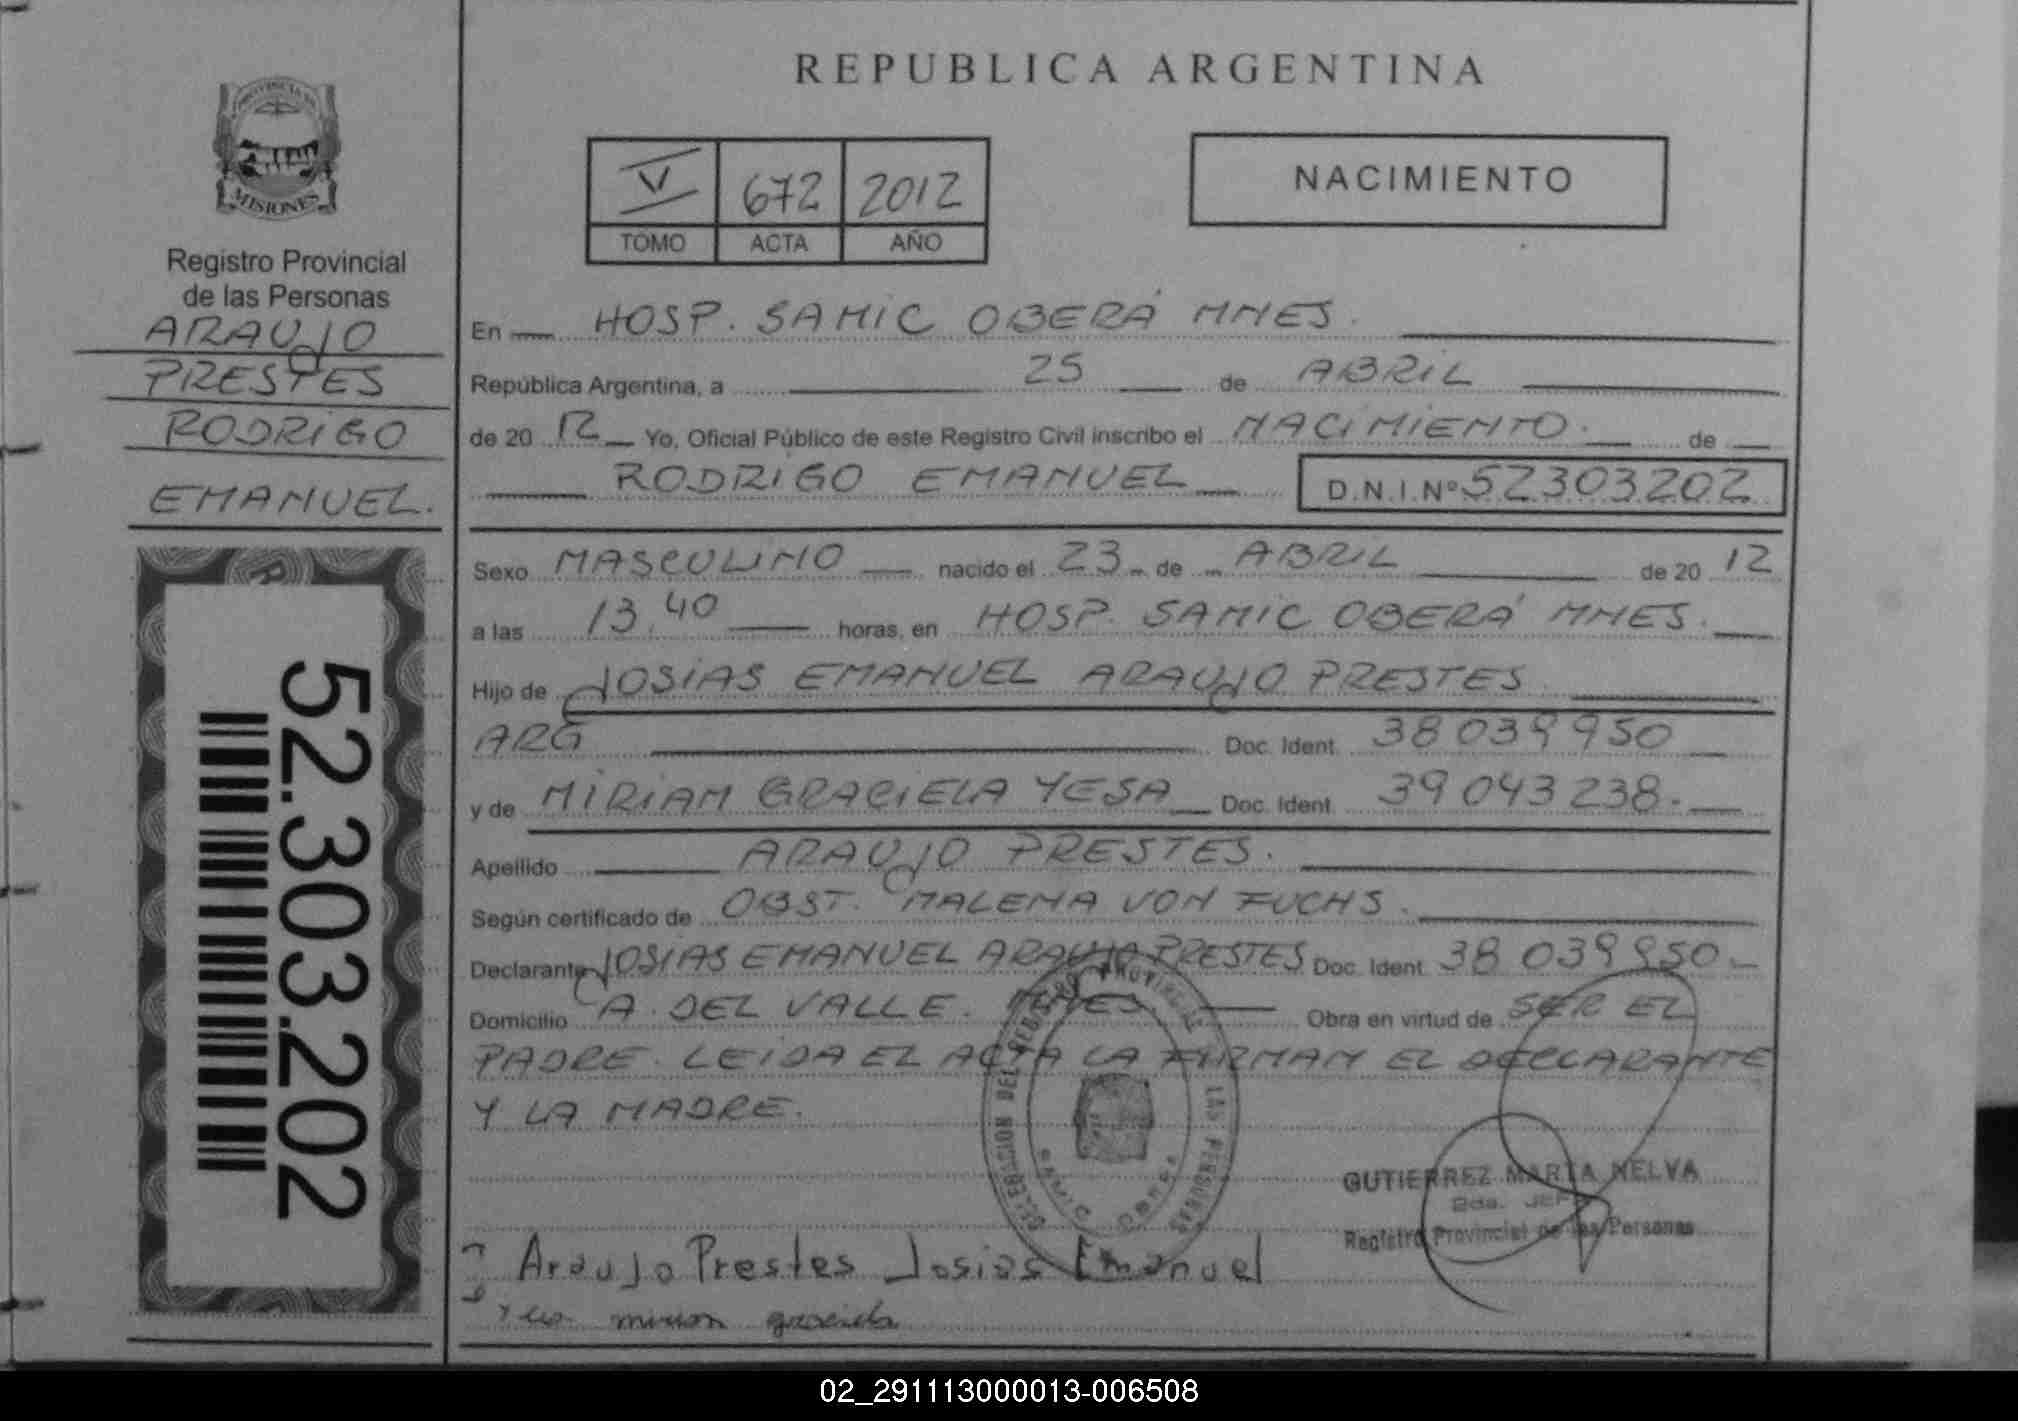 PROVINCIA DE
MISIONES
Registro Provincial
de las Personas
ARAUJO
PRESTES
RODRIGO
EMANUEL.
52.303.202
REPUBLICA ARGENTINA
V 672 2012
TOMO ACTA AÑO
NACIMIENTO
En HOSP. SAMIC OBERÁ MNES.
República Argentina, a 25 de ABRIL
de 20 12 Yo, Oficial Público de este Registro Civil inscribo el NACIMIENTO. de
RODRIGO EMANUEL D.N.I. Nº 52303202
Sexo MASCULINO nacido el 23 de ABRIL de 20 12
a las 13,40 horas, en HOSP. SAMIC OBERÁ MNES.
Hijo de JOSIAS EMANUEL ARAUJO PRESTES
ARG Doc. Ident. 38 039 950
y de MIRIAM GRACIELA YESA Doc. Ident. 39 043 238.
Apellido ARAUJO PRESTES.
Según certificado de OBST. MALENA VON FUCHS.
Declarante JOSIAS EMANUEL ARAUJO PRESTES Doc. Ident. 38 039 950
Domicilio A. DEL VALLE. MNES Obra en virtud de SER EL
PADRE. LEIDA EL ACTA LA FIRMAN EL DECLARANTE
Y LA MADRE.
DELEGACION DEL REGISTRO PROVINCIAL LAS PERSONAS
GUTIERREZ MARTA NELVA
2da. JEFE
Registro Provincial de las Personas
Araujo Prestes Josias Emanuel
miriam graciela
02_291113000013-006508